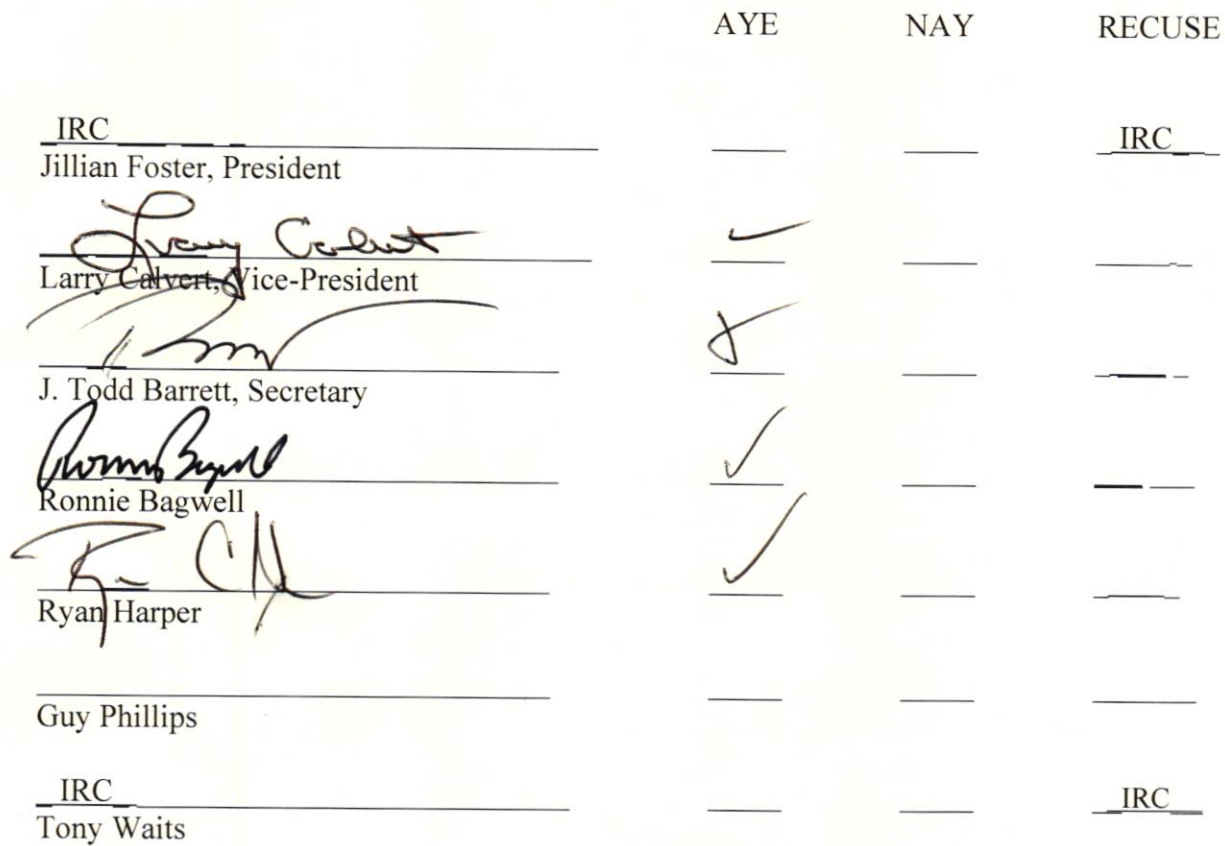 AYE NAY RECUSE
IRC IRC
Jillian Foster, President
Larry Calvert ✓
Larry Calvert, Vice-President
✓
J. Todd Barrett, Secretary
Ronnie Bagwell ✓
Ronnie Bagwell
✓
Ryan Harper
Guy Phillips
IRC IRC
Tony Waits